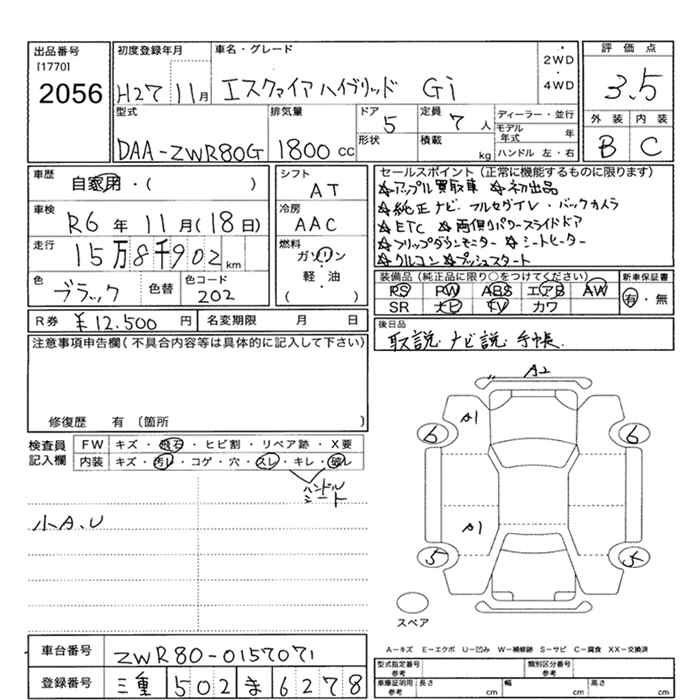 出品番号
[1770]
2056
初度登録年月
H27 11月
車名・グレード
エスクァイア ハイブリッド Gi
・
2WD
・
4WD
評価点
3.5
外装 内装
B C
型式
DAA-ZWR80G
排気量
1800 cc
ドア
5
形状
定員
7人
積載
kg
ディーラー・並行
モデル年式 年
ハンドル 左・右
車歴
自家用・( )
車検
R6年 11月(18日)
走行
15万8千902 km
色
ブラック
色替
色コード
202
シフト
AT
冷房
AAC
燃料
ガソリン
軽・油
( )
セールスポイント(正常に機能するものに限ります)
☆アップル買取車 ☆初出品
☆純正ナビ・フルセグTV・バックカメラ
☆ETC ☆両側パワースライドドア
☆フリップダウンモニター ☆シートヒーター
☆クルコン ☆プッシュスタート
装備品(純正品に限り○をつけてください)
PS PW ABS エアB AW
SR ナビ TV カワ
新車保証書
有・無
R券 ¥12,500 円
名変期限 月 日
後日品
取説 ナビ説 手帳
注意事項申告欄(不具合内容等は具体的に記入して下さい)
修復歴 有 〔箇所 〕
検査員記入欄
FW キズ・飛石・ヒビ割・リペア跡・X要
内装 キズ・汚レ・コゲ・穴・スレ・キレ・破レ
ハンドル
シート
小A、U
A2
A1
6 6
A1
5 5
スペア
A−キズ E−エクボ U−凹み W−補修跡 S−サビ C−腐食 XX−交換済
車台番号
ZWR80-0157071
登録番号
三重 502 ま 6278
型式指定番号 参考
類別区分番号 参考
車庫証明用 参考
長さ cm
幅 cm
高さ cm